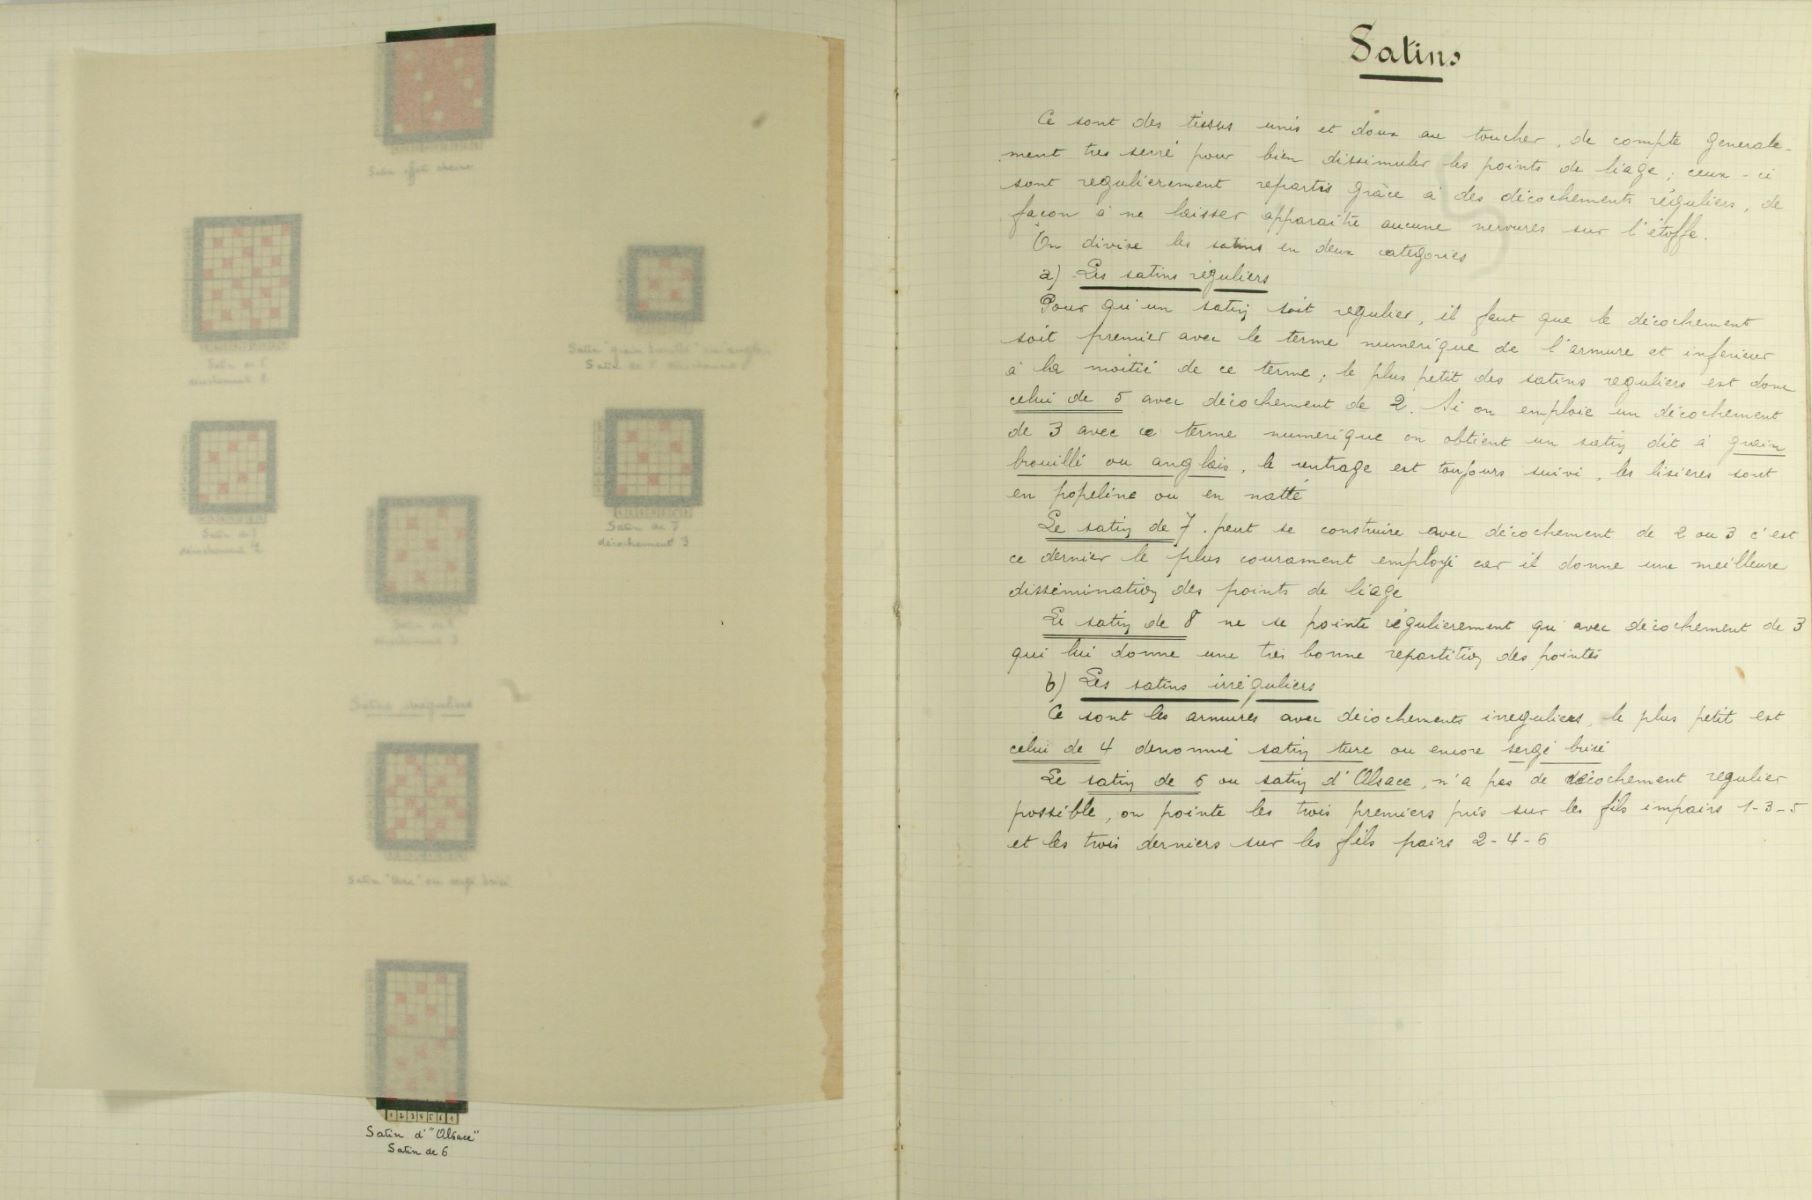 Satin effet chaine
Satin de 5
décochement 2
Satin "grain brouillé" ou anglais
Satin de 5 décochement 3
Satin de 7
décochement 2
Satin de 7
décochement 3
Satin de 8
décochement 3
Satins irreguliers
Satin "turc" ou sergé brisé
1 2 3 4 5 6
Satin d'"Alsace"
Satin de 6
Satins
Ce sont des tissus unis et doux au toucher, de compte generale-
ment tres serré pour bien dissimuler les points de liage ; ceux-ci
sont regulierement repartis grâce à des décochements réguliers, de
façon à ne laisser apparaitre aucune nervures sur l'étoffe.
On divise les satins en deux categories
a) Les satins réguliers
Pour qu'un satin soit regulier, il faut que le décochement
soit premier avec le terme numerique de l'armure et inferieur
à la moitié de ce terme ; le plus petit des satins reguliers est donc
celui de 5 avec décochement de 2. Si on emploie un décochement
de 3 avec ce terme numerique on obtient un satin dit à grain
brouillé ou anglais, le rentrage est toujours suivi, les lisieres sont
en popeline ou en natté
Le satin de 7. peut se construire avec décochement de 2 ou 3 c'est
ce dernier le plus courament employé car il donne une meilleure
dissémination des points de liage
Le satin de 8 ne se pointe régulierement qu'avec décochement de 3
qui lui donne une tres bonne repartition des pointés
b) Les satins irréguliers
Ce sont les armures avec décochements irreguliers, le plus petit est
celui de 4 denommé satin turc ou encore sergé brisé
Le satin de 6 ou satin d'Alsace, n'a pas de décochement regulier
possible, on pointe les trois premiers pris sur les fils impairs 1-3-5
et les trois derniers sur les fils pairs 2-4-6